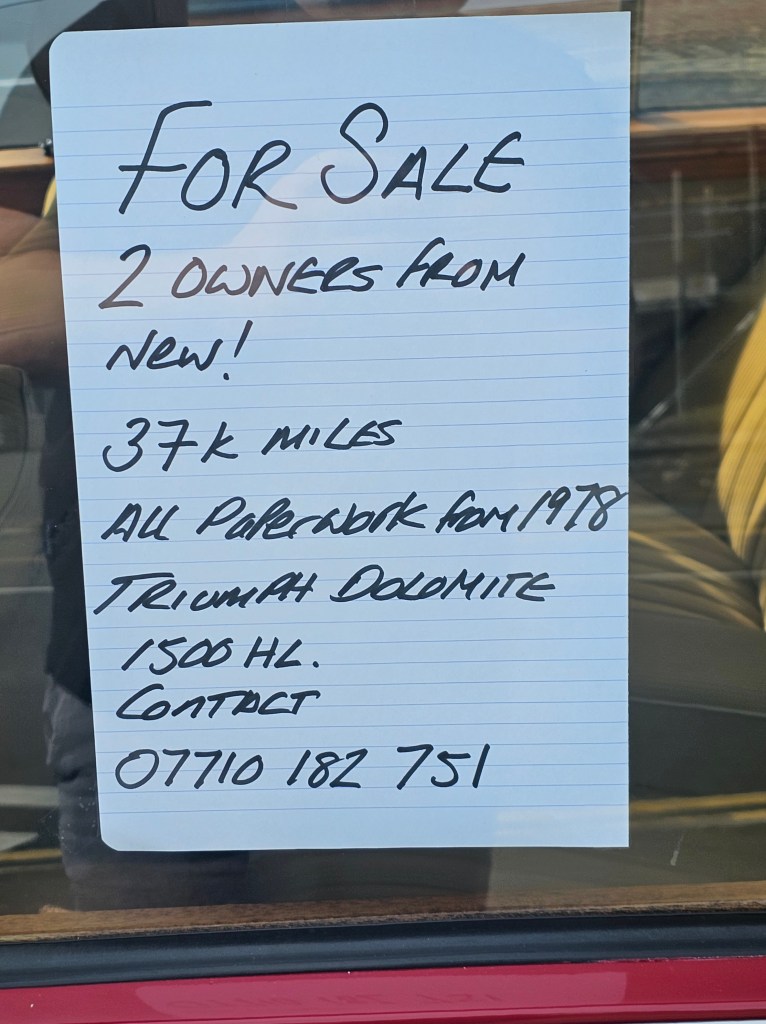 FOR SALE
2 OWNERS FROM
NEW!
37K MILES
ALL PaPerwork from 1978
TRIUMPH DOLOMITE
1500 HL.
CONTACT
07710 182 751